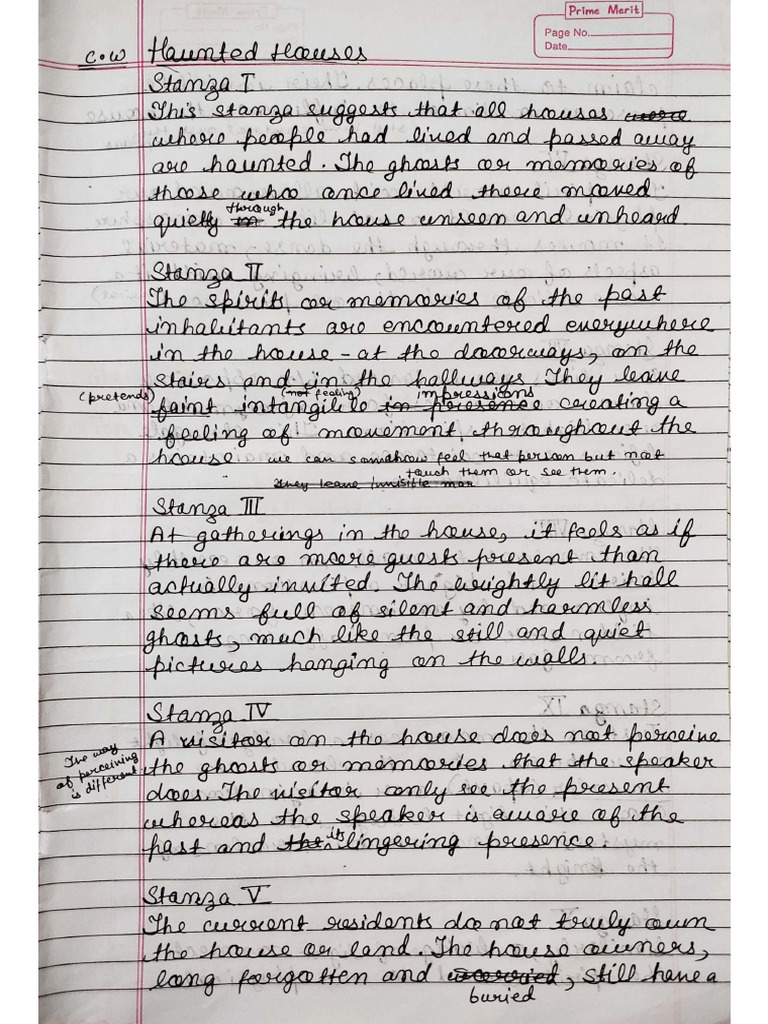 Prime Merit
Page No.
Date
C.W Haunted Houses
Stanza I
This stanza suggests that all houses
where people had lived and passed away
are haunted. The ghosts or memories of
those who once lived there moved
through
quietly in the house unseen and unheard.
Stanza II
The spirits or memories of the past
inhabitants are encountered everywhere
in the house - at the doorways, on the
stairs, and in the hallways. They leave
(pretends) (not feeling) impressions
faint intangible in presence creating a
feeling of movement, throughout the
house. we can somahow feel that person but not
touch them or see them.
They leave invisible
Stanza III
At gatherings in the house, it feels as if
there are more guests present than
actually invited. The brightly lit hall
seems full of silent and harmless
ghosts, much like the still and quiet
pictures hanging on the walls.
Stanza IV
A visitor on the house does not perceive
The way
of perceiving
is different
the ghosts or memories that the speaker
does. The visitor only see the present
whereas the speaker is aware of the
past and its lingering presence.
Stanza V
The current residents do not truly own
the house or land. The house owners,
long forgotten and , still have a
buried